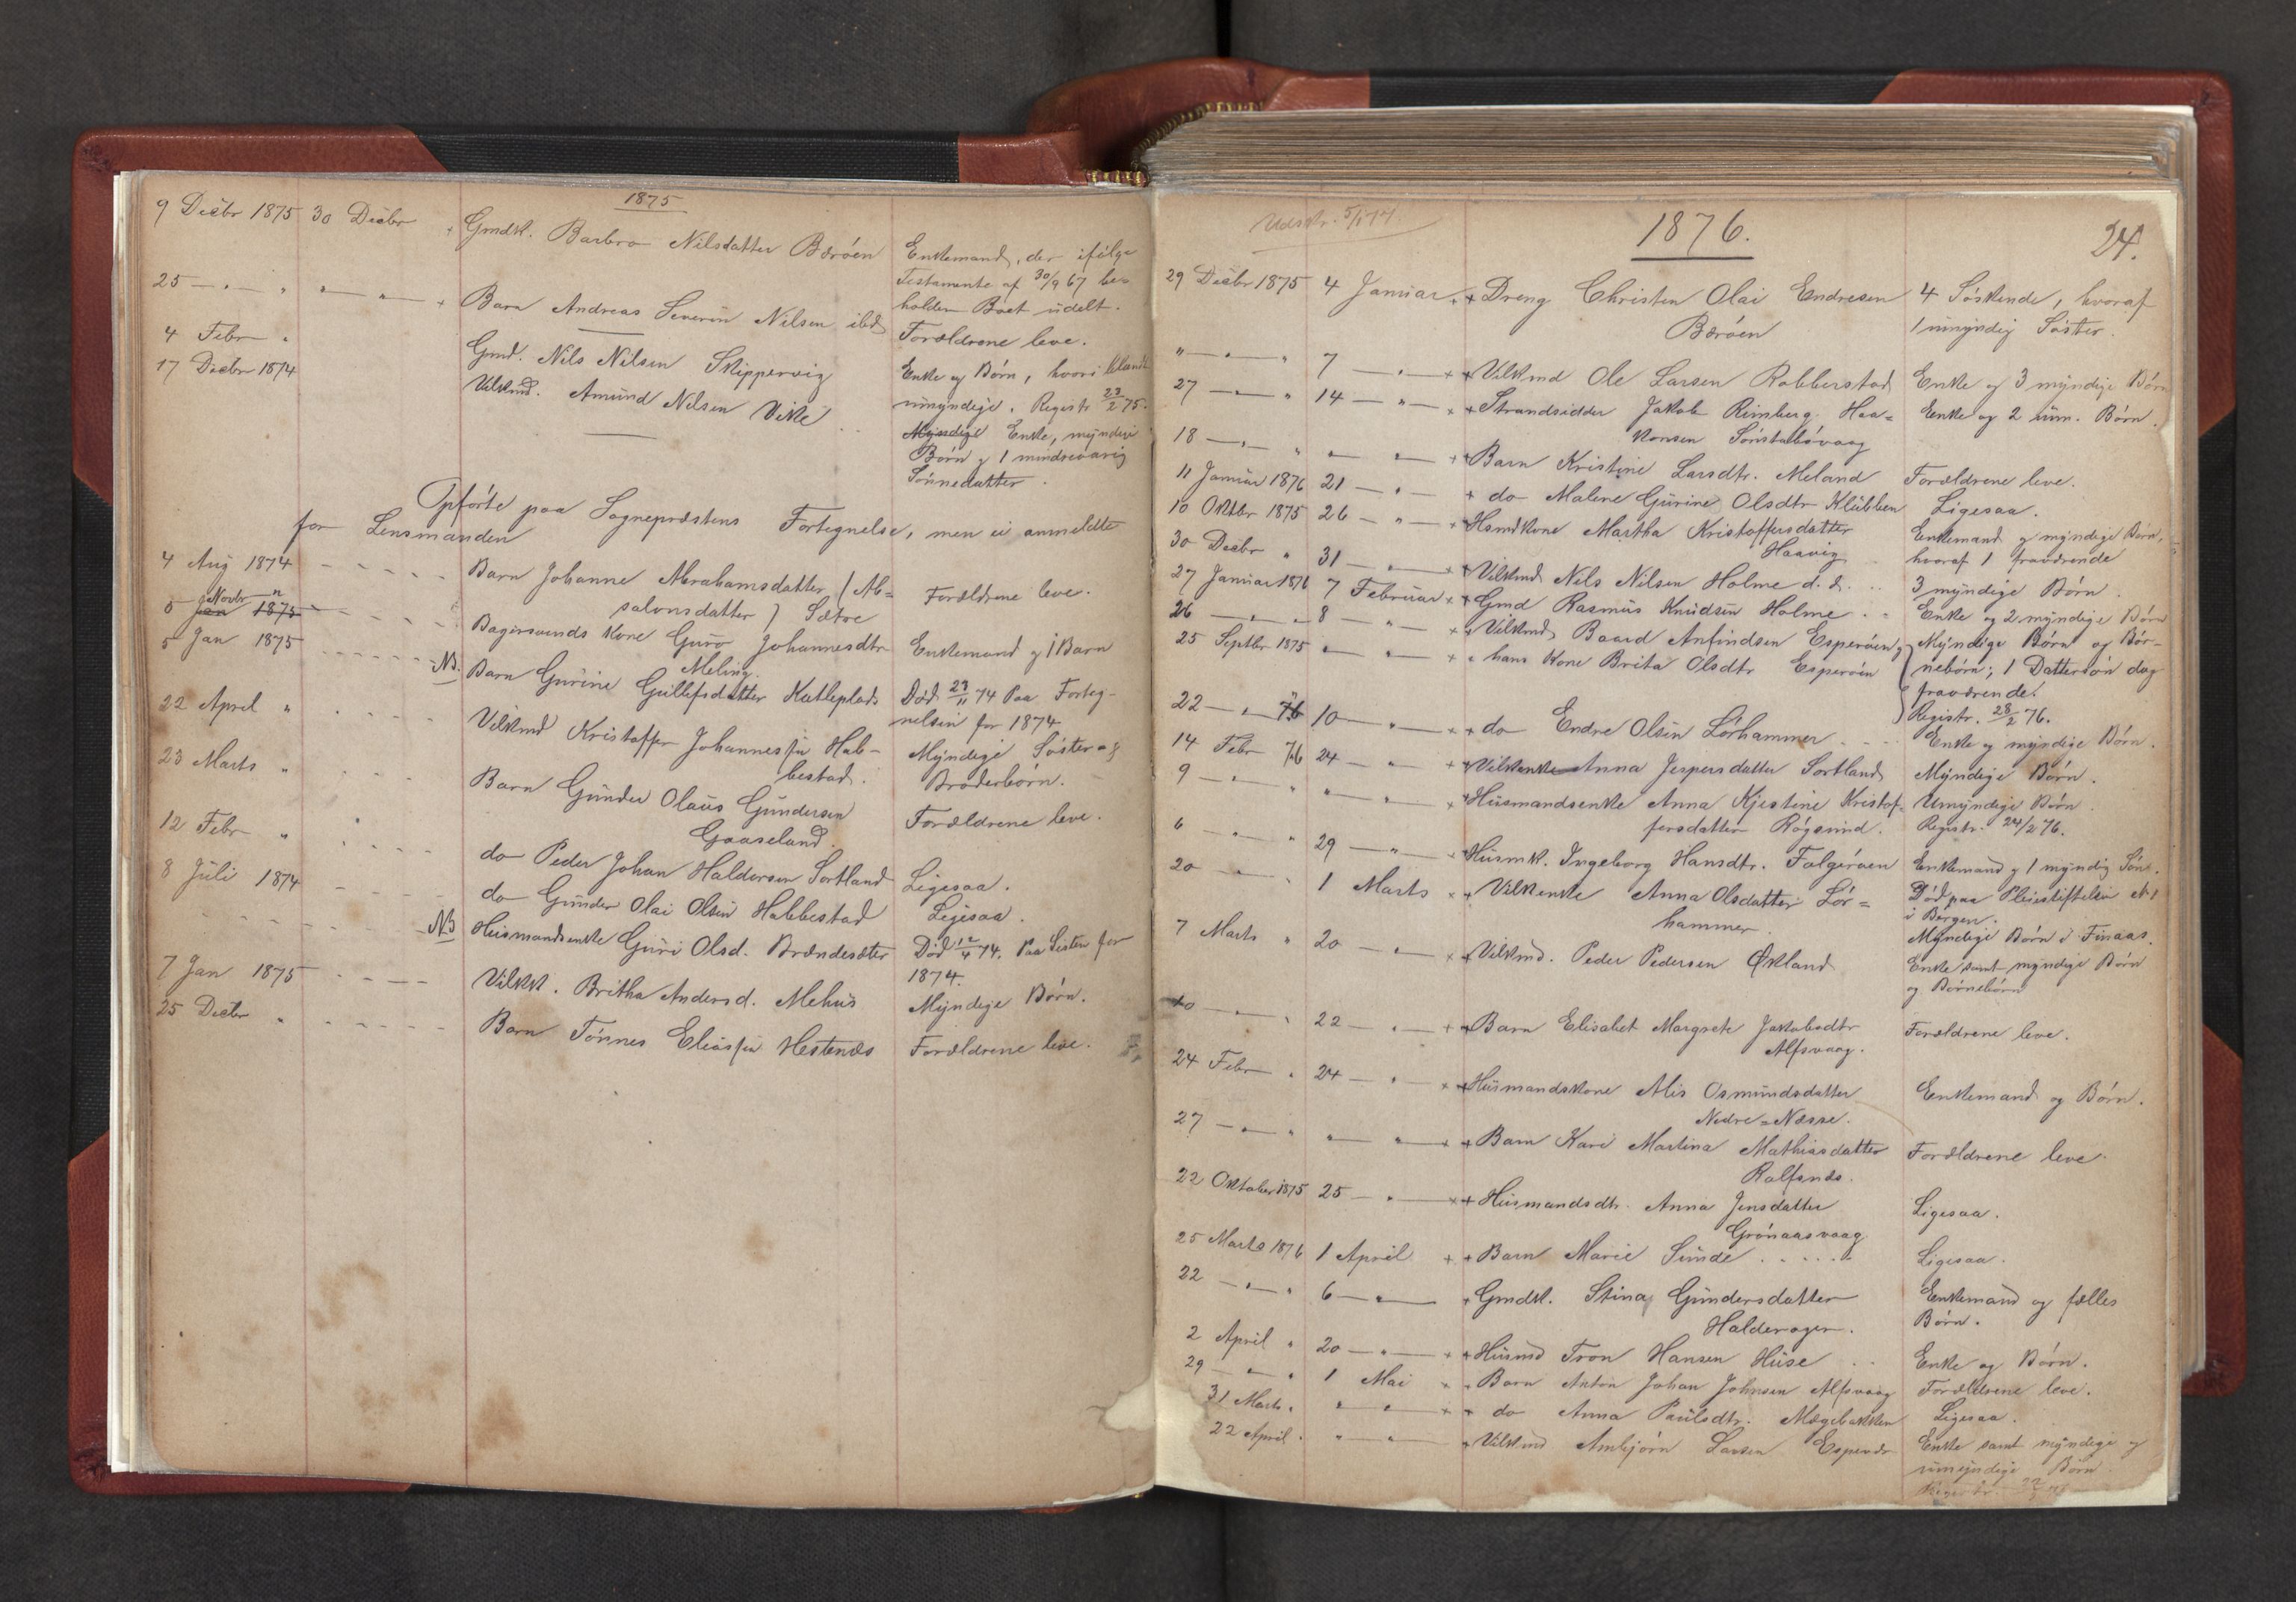 1875
9 Decbr 1875 30 Decbr + Gmdk. Barbro Nilsdatter Børøen Enkemand, der ifølge
Testamente af 30/9 67 be-
holder Boet udelt.
25 — " — " " — " — + Barn Andreas Severin Nilsen ibd Forældrene leve.
4 Febr " Gmd. Nils Nilsen Skippervig Enke og Børn, hvori blandt
umyndige. Registr 23/2 75.
17 Decbr 1874 Vilkmd. Amund Nilsen Vike Myndige Enke, myndige
Børn og 1 mindreaarig
Sønnedatter.
Opførte paa Sognepræstens Fortegnelse, men ei anmeldte
for Lensmanden
4 Aug 1874 Barn Johanne Abrahamsdatter (Ab-
salonsdatter) Sætre Forældrene leve.
5 Jan Novbr 1875 " Bagersvends Kone Guro Johannesdtr
Meling. Enkemand og 1 Barn
5 Jan 1875 NB. Barn Gurine Gullefsdatter Katleplads Død 23/11 74 Paa Forteg-
nelsen for 1874
22 April " Vilkmd Kristoffer Johannessen Hab-
bestad. Myndige Søster- &
Broderbørn.
23 Marts " Barn Gunder Olaus Gundersen
Gaaseland. Forældrene leve.
12 Febr " do Peder Johan Haldorsen Sortland Ligesaa.
8 Juli 1874 do Gunder Olai Olsen Habbestad Ligesaa.
NB Huismandsenke Guri Olsd. Brændesæter Død 12/4 74. Paa Listen for
1874.
7 Jan 1875 Vilkk. Britha Andersd. Mehus Myndige Børn.
25 Decbr " Barn Tønnes Eliassen Hestenæs Forældrene leve.
Udskr. 5/1 77.
1876.
24.
29 Decbr 1875 4 Januar + + Dreng Christen Olai Endresen
Børøen 4 Søskende, hvoraf
1 umyndig Søster.
" — " — " 7 — " — + + Vilkmd Ole Larsen Robberstad Enke og 3 myndige Børn
27 — " — " 14 — " — + + Strandsidder Jakob Rimberg Haa-
konsen Sønstabøvaag Enke og 2 um. Børn.
18 — " — " " — " — + + Barn Kristine Larsdtr. Meland Forældrene leve.
11 Januar 1876 21 — " — + do Malene Gurine Olsdtr Klubben Ligesaa.
10 Oktbr 1875 26 — " — + Hsmdkone Martha Kristoffersdatter
Haavig Enkemand og myndige Børn,
hvoraf 1 fraværende
30 Decbr " 31 — " — + Vilkmd Nils Nilsen Holme d. æ. 3 myndige Børn.
27 Januar 1876 7 Februar + + Gmd Rasmus Knudsen Holme Enke og 2 myndige Børn
26 — " — " 8 — " — + + Vilkmd Baard Anfindsen Esperøen og Myndige Børn og Bør-
25 Septbr 1875 " — " — + " hans Kone Brita Olsdtr Esperøen nebørn; 1 Dattersøn dog
fraværende.
Registr. 28/2 76.
22 — " 76 10 — " — + + do Endre Olsen Lørhammer Enke og myndige Børn.
14 Febr 76 24 — " — + + Vilkenke Anna Jespersdatter Sortland Myndige Børn.
9 — " — " " — " — + + Husmandsenke Anna Kjestine Kristof-
fersdatter Røgsund. Umyndige Børn.
Registr. 24/2 76.
6 — " — " 29 — " — + Husmk. Ingeborg Hansdtr. Folgerøen Enkemand og 1 myndig Søn.
20 — " — " 1 Marts + + Vilkenke Anna Olsdatter Lør-
hammer Død paa Pleiestiftelsen No 1
i Bergen.
Myndige Børn i Finaas.
7 Marts " 20 — " — + + Vilkmd. Peder Pedersen Økland Enke samt myndige Børn
og Børnebørn
10 — " — " 22 — " — + + Barn Elisabet Margrete Jakobsdtr
Alfsvaag. Forældrene leve.
24 Febr " 24 — " — + + Husmandskone Alis Osmundsdatter
Nedre-Næsse. Enkemand og Børn.
27 — " — " " — " — + + Barn Kari Martina Mathiasdatter
Rolfsnæs. Forældrene leve.
22 Oktober 1875 25 — " — + + Husmandsdtr. Anna Jensdatter
Grønaasvaag Ligesaa.
25 Marts 1876 1 April + + Barn Marie Sunde Ligesaa.
22 — " — " 6 — " — + Gmdk. Stina Gundersdatter
Halderager. Enkemand og fælles
Børn.
2 April " 20 — " — + + Husmd Tron Hansen Huse Enke og Børn.
29 — " — " 1 Mai + + Barn Anton Johan Johnsen Alfsvaag Forældrene leve.
31 Marts " " — " — + + do Anna Paulsdtr. Møgebakken Ligesaa.
22 April " " — " — + Vilkmd Anbjørn Larsen Enke samt myndige og
umyndige Børn.